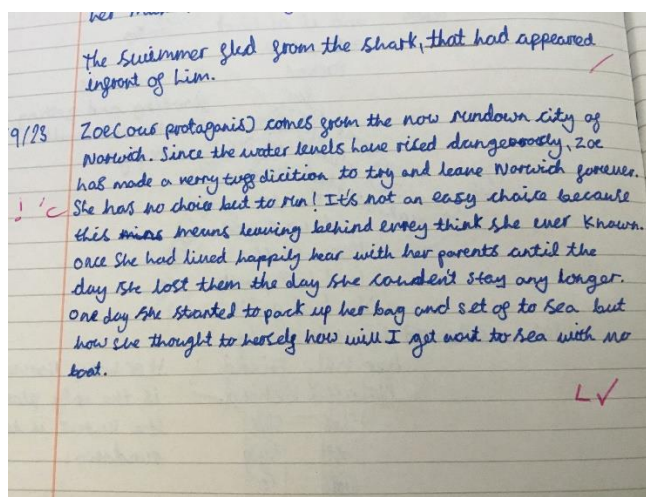 The swimmer fled from the shark, that had appeared
infront of him.
9/23 Zoe(our protaganis) comes from the now rundown city of
Norwich. Since the water levels have rised dangerously, Zoe
has made a verry tugg dicition to try and leave Norwich forever.
! 'c She has no choice but to run! It's not an easy choice because
this means leaving behind evrey think she ever known.
once she had lived happily hear with her parents antil the
day she lost them the day she couldent stay any longer.
One day she started to pack up her bag and set of to sea but
how she thought to herself how will I get out to sea with no
boat.
L